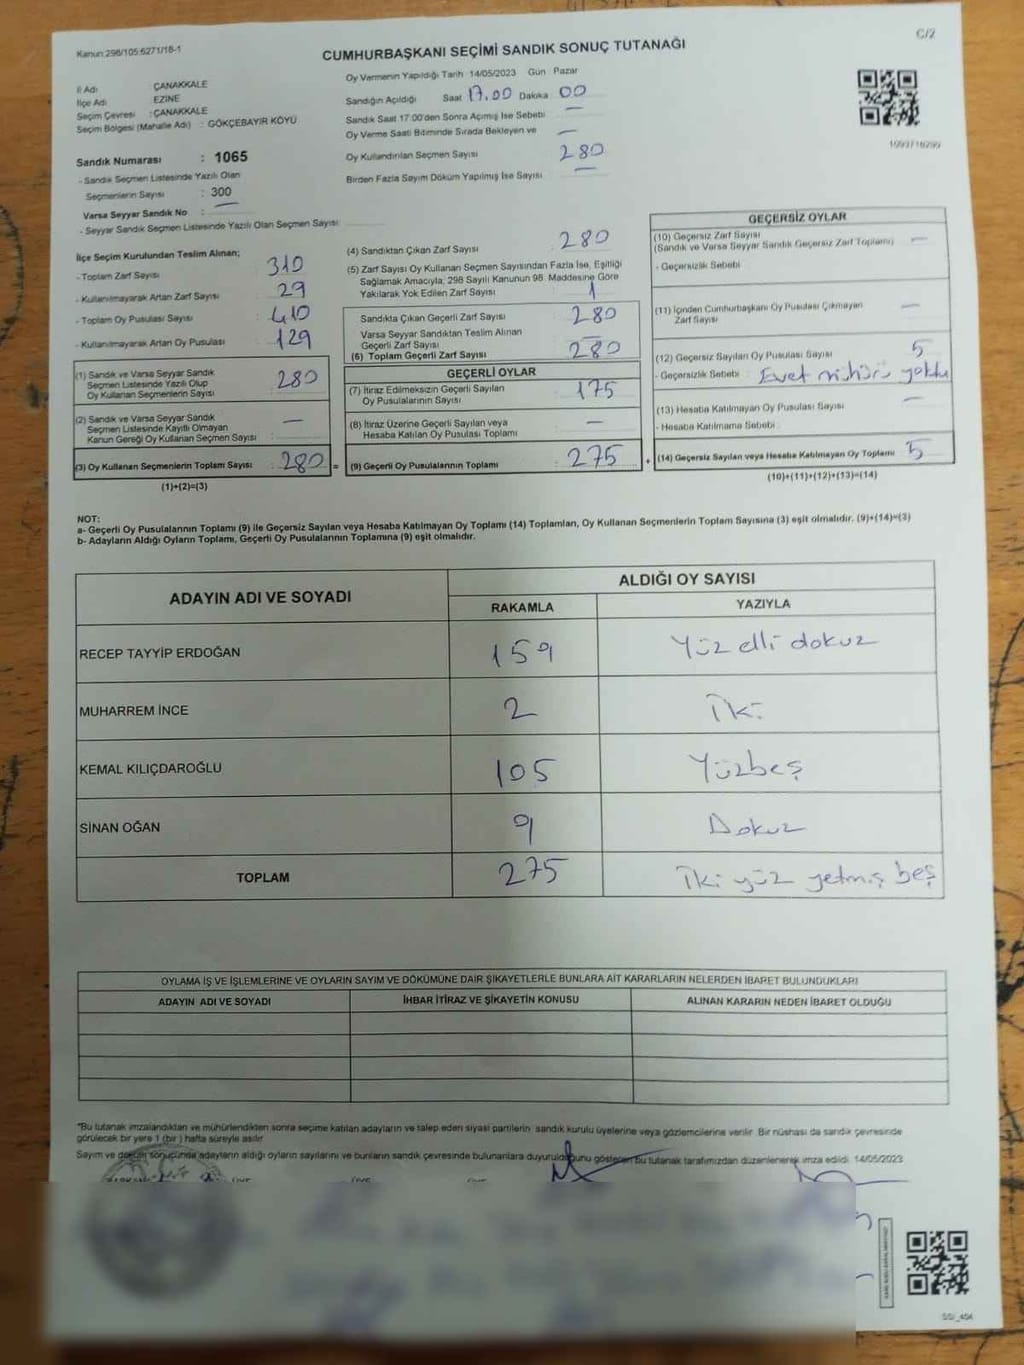 Kanun:298/105:6271/18-1
C/2
CUMHURBAŞKANI SEÇİMİ SANDIK SONUÇ TUTANAĞI
İl Adı : ÇANAKKALE
İlçe Adı EZINE
Seçim Çevresi : ÇANAKKALE
Seçim Bölgesi (Mahalle Adı) : GÖKÇEBAYIR KÖYÜ
Sandık Numarası : 1065
- Sandık Seçmen Listesinde Yazılı Olan
Seçmenlerin Sayısı : 300
Varsa Seyyar Sandık No : —
- Seyyar Sandık Seçmen Listesinde Yazılı Olan Seçmen Sayısı
Oy Vermenin Yapıldığı Tarih 14/05/2023 Gün Pazar
Sandığın Açıldığı Saat 17.00 Dakika 00
Sandık Saat 17:00'den Sonra Açımış İse Sebebi —
Oy Verme Saati Bitiminde Sırada Bekleyen ve —
Oy Kullandırılan Seçmen Sayısı 280
Birden Fazla Sayım Döküm Yapılmış İse Sayısı —
İlçe Seçim Kurulundan Teslim Alınan;
- Toplam Zarf Sayısı 310
- Kullanılmayarak Artan Zarf Sayısı 29
- Toplam Oy Pusulası Sayısı 410
- Kullanılmayarak Artan Oy Pusulası 129
(1) Sandık ve Varsa Seyyar Sandık
Seçmen Listesinde Yazılı Olup
Oy Kullanan Seçmenlerin Sayısı : 280
(2) Sandık ve Varsa Seyyar Sandık
Seçmen Listesinde Kayıtlı Olmayan
Kanun Gereği Oy Kullanan Seçmen Sayısı : —
(3) Oy Kullanan Seçmenlerin Toplam Sayısı : 280 =
(1)+(2)=(3)
(4) Sandıktan Çıkan Zarf Sayısı 280
(5) Zarf Sayısı Oy Kullanan Seçmen Sayısından Fazla İse, Eşitliği
Sağlamak Amacıyla; 298 Sayılı Kanunun 98. Maddesine Göre
Yakılarak Yok Edilen Zarf Sayısı 1
Sandıkta Çıkan Geçerli Zarf Sayısı 280
Varsa Seyyar Sandıktan Teslim Alınan
Geçerli Zarf Sayısı —
(6) Toplam Geçerli Zarf Sayısı 280
GEÇERLİ OYLAR
(7) İtiraz Edilmeksizin Geçerli Sayılan
Oy Pusulalarının Sayısı 175
(8) İtiraz Üzerine Geçerli Sayılan veya
Hesaba Katılan Oy Pusulası Toplamı —
(9) Geçerli Oy Pusulalarının Toplamı 275 +
GEÇERSİZ OYLAR
(10) Geçersiz Zarf Sayısı
(Sandık ve Varsa Seyyar Sandık Geçersiz Zarf Toplamı) —
- Geçersizlik Sebebi
(11) İçinden Cumhurbaşkanı Oy Pusulası Çıkmayan
Zarf Sayısı —
(12) Geçersiz Sayılan Oy Pusulası Sayısı 5
- Geçersizlik Sebebi : Evet mührü yoktu
(13) Hesaba Katılmayan Oy Pusulası Sayısı —
- Hesaba Katılmama Sebebi
(14) Geçersiz Sayılan veya Hesaba Katılmayan Oy Toplamı 5
(10)+(11)+(12)+(13)=(14)
NOT:
a- Geçerli Oy Pusulalarının Toplamı (9) ile Geçersiz Sayılan veya Hesaba Katılmayan Oy Toplamı (14) Toplamları, Oy Kullanan Seçmenlerin Toplam Sayısına (3) eşit olmalıdır. (9)+(14)=(3)
b- Adayların Aldığı Oyların Toplamı, Geçerli Oy Pusulalarının Toplamına (9) eşit olmalıdır.
ADAYIN ADI VE SOYADI
ALDIĞI OY SAYISI
RAKAMLA YAZIYLA
RECEP TAYYİP ERDOĞAN 159 Yüz elli dokuz
MUHARREM İNCE 2 İki
KEMAL KILIÇDAROĞLU 105 Yüzbeş
SİNAN OĞAN 9 Dokuz
TOPLAM 275 İki yüz yetmiş beş
OYLAMA İŞ VE İŞLEMLERİNE VE OYLARIN SAYIM VE DÖKÜMÜNE DAİR ŞİKAYETLERLE BUNLARA AİT KARARLARIN NELERDEN İBARET BULUNDUKLARI
ADAYIN ADI VE SOYADI İHBAR İTİRAZ VE ŞİKAYETİN KONUSU ALINAN KARARIN NEDEN İBARET OLDUĞU
"Bu tutanak imzalandıktan ve mühürlendikten sonra seçime katılan adayların ve talep eden siyasi partilerin sandık kurulu üyelerine veya gözlemcilerine verilir. Bir nüshası da sandık çevresinde
görülecek bir yere 1 (bir) hafta süreyle asılır.
Sayım ve döküm sonucunda adayların aldığı oyların sayılarını ve bunların sandık çevresinde bulunanlara duyurulduğunu gösteren bu tutanak tarafımızdan düzenlenerek imza edildi. 14/05/2023